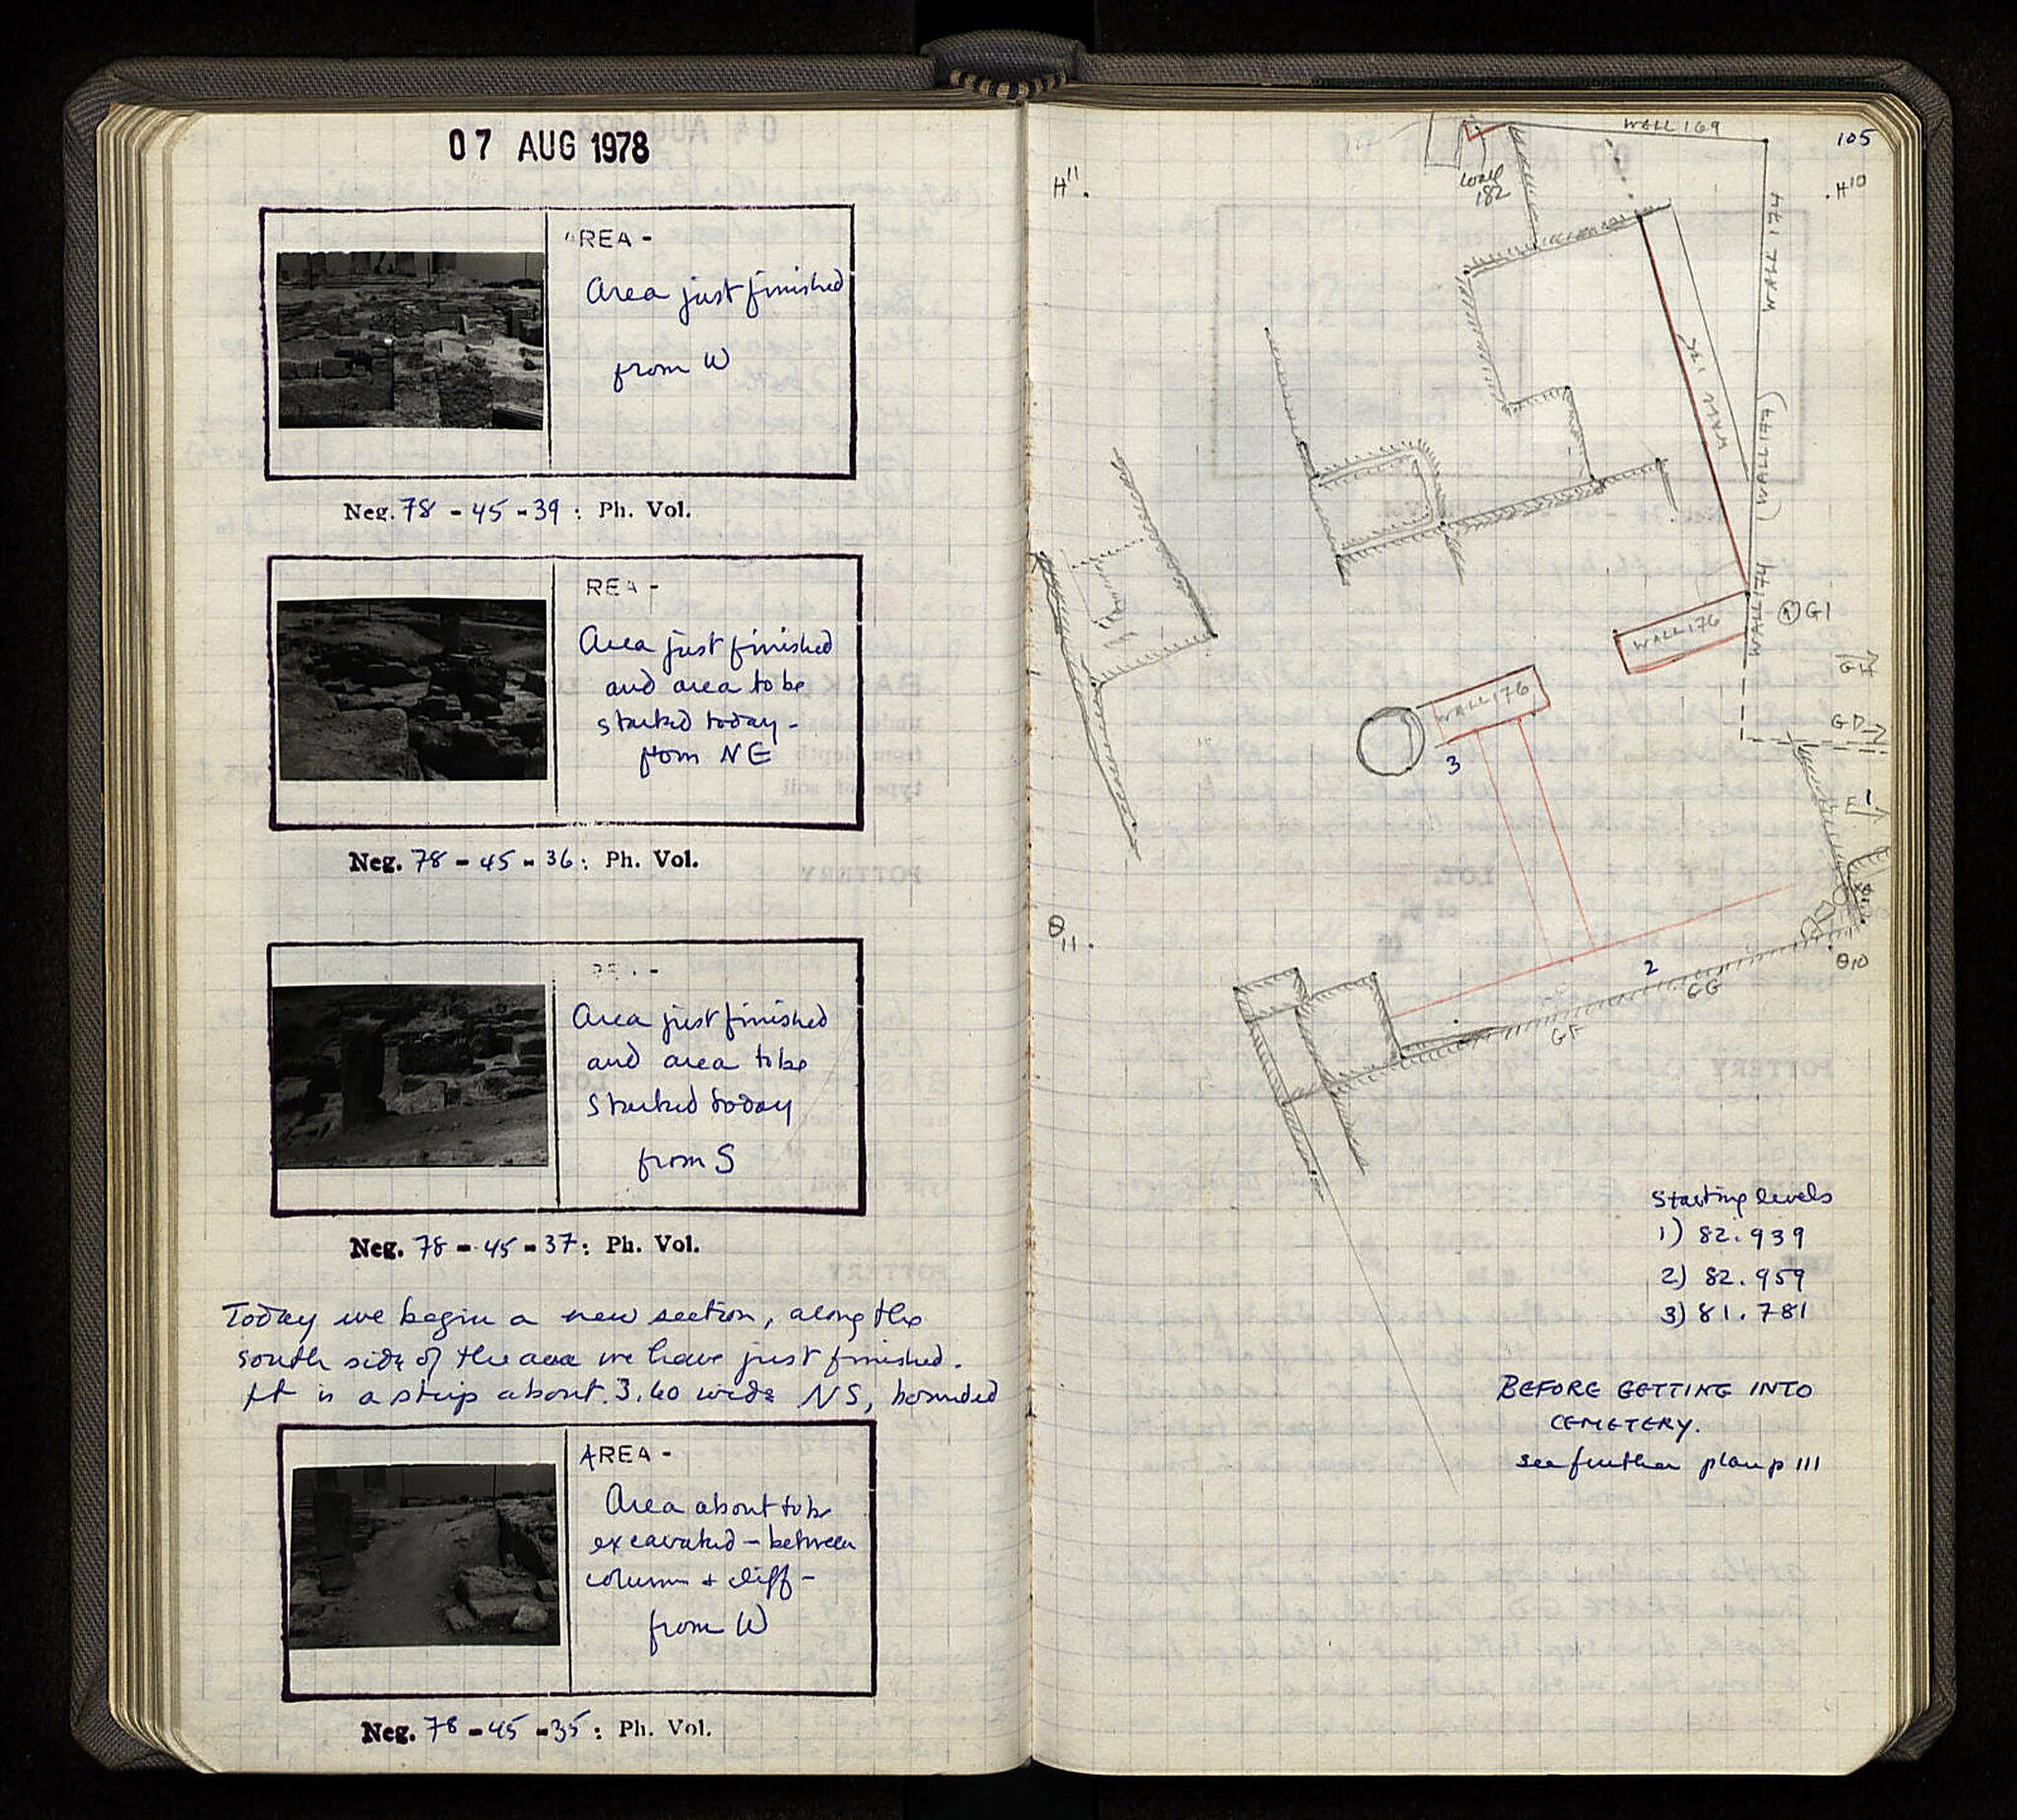 07 AUG 1978
AREA -
Area just finished
from W
Neg. 78 - 45 - 39 : Ph. Vol.
REA -
Area just finished
and area to be
started today -
from NE
Neg. 78 - 45 - 36 : Ph. Vol.
Area just finished
and area to be
started today
from S
Neg. 78 - 45 - 37 : Ph. Vol.
Today we begin a new section, along the
south side of the area we have just finished.
It is a strip about 3.60 wide NS, bounded
AREA -
Area about to be
excavated - between
column + cliff -
from W
Neg. 78 - 45 - 35 : Ph. Vol.
105
WALL 169
H11 .
wall
182
. H10
WALL 174
(WALL 174)
WALL 174
WALL 176
G1
GD
WALL 176
3
1
θ
11 .
2
GG
θ10
GF
Starting levels
1) 82.939
2) 82.959
3) 81.781
BEFORE GETTING INTO
CEMETERY.
see further plan p 111